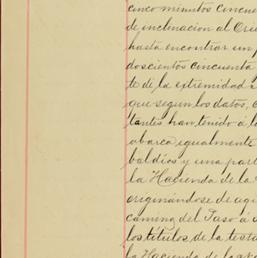 cinco minutos cincuen
de inclinacion al Orie
hasta encontrar un p
doscientos cincuenta
te de la extremidad
que segun los datos,
tantes han tenido á l
abarca igualmente
baldíos y una part
la Hacienda de la
oregenándose de aqu
camino del Paso á
los títulos de la testa
la Hacienda de la